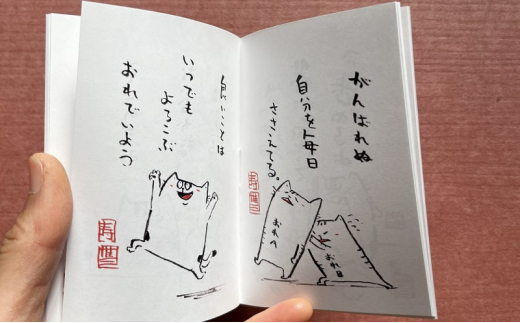 がんばれぬ
自分を毎日
ささえてる。
おれA
おれB
良いことは
いつでも
よろこぶ
おれでいよう